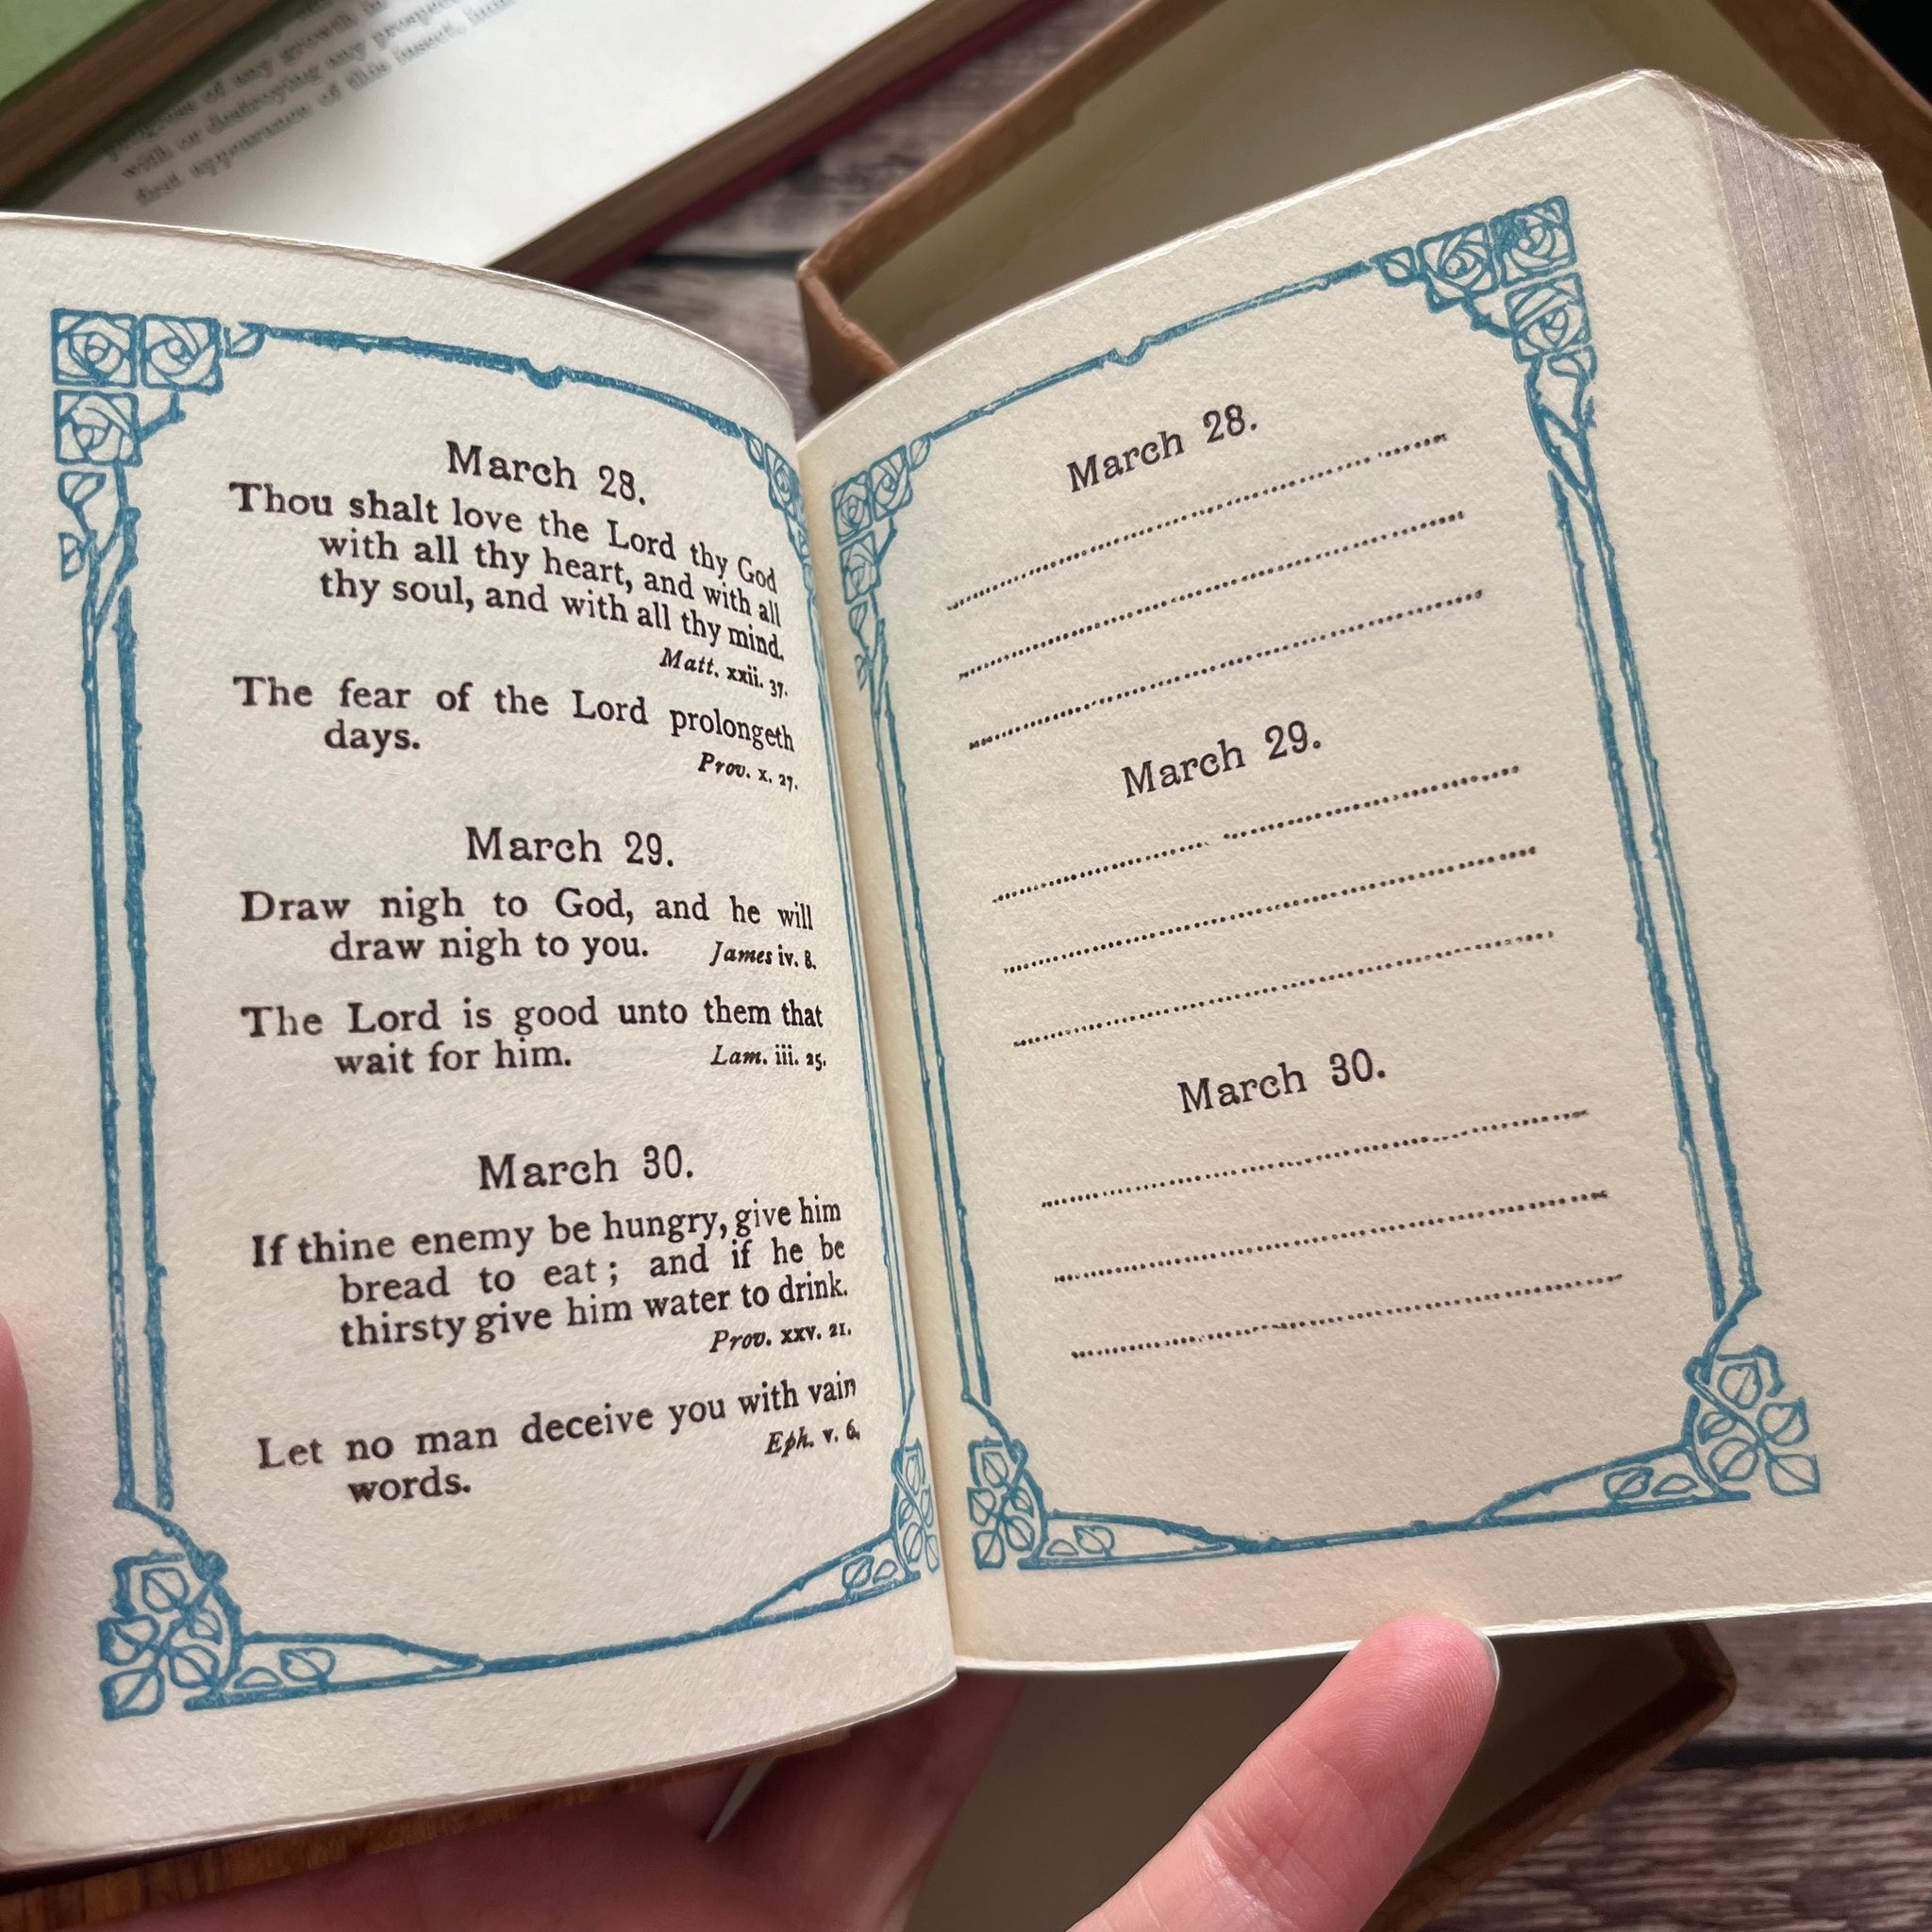 progress of any growth in
with or destroying any
first appearance of this insect,
March 28.
Thou shalt love the Lord thy God
with all thy heart, and with all
thy soul, and with all thy mind.
Matt. xxii. 37.
The fear of the Lord prolongeth
days.
Prov. x. 27.
March 29.
Draw nigh to God, and he will
draw nigh to you. James iv. 8.
The Lord is good unto them that
wait for him. Lam. iii. 25.
March 30.
If thine enemy be hungry, give him
bread to eat; and if he be
thirsty give him water to drink.
Prov. xxv. 21.
Let no man deceive you with vain
words. Eph. v. 6.
March 28.
March 29.
March 30.